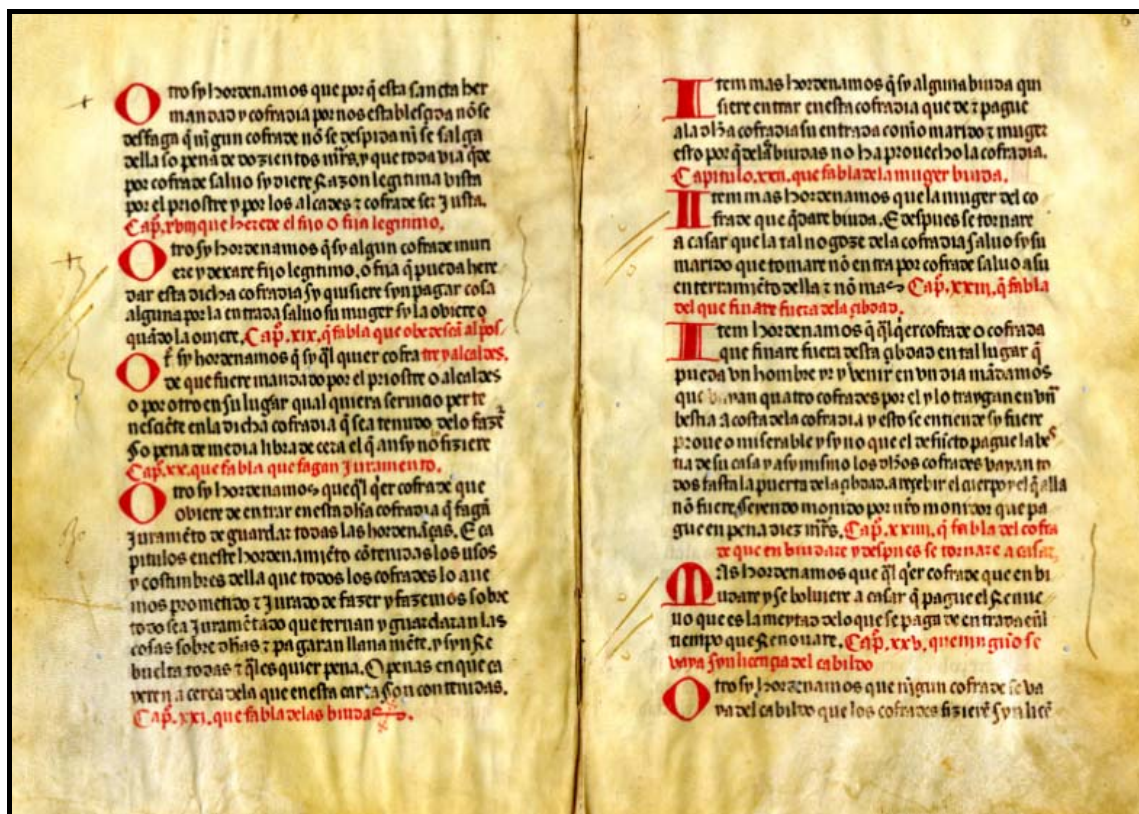 Otro sy hordenamos que por q̃ esta sancta her
mandad y cofradia por nos establesçida nõ se
desfaga q̃ nigun cofrade nõ se despida ni se salga
della so pena de dozientos mr̃s, y que toda via q̃de
por cofrade saluo sy diere Razon legitima vista
por el prioste y por los alcades ⁊ cofrade ser Justa.
Cap̃. xviij que herede el fijo o fija legitimo.
Otro sy hordenamos q̃ sy algun cofrade muri
ere y dexare fijo legitimo, o fija q̃ pueda here
dar esta dicha cofradia sy quisiere syn pagar cosa
alguna por la entrada saluo su muger sy la obiere o
quãdo la ouiere. Cap̃. xix. q̃ fabla que obedescã al pos/
Ot̃ sy hordenamos q̃ sy q̃l quier cofra tre y alcaldes.
de que fuere mandado por el prioste o alcaldes
o por otro en su lugar qual quiera seruicio per te
nesciẽte en la dicha cofradia q̃ sea tenudo, delo fazẽ
So pena de media libra de cera el q̃ ansy nõ fiziere
Cap̃. xx. que fabla que fagan Juramento.
Otro sy hordenamos que q̃l q̃er cofrade que
obiere de entrar en esta dh̃a cofradia q̃ fagã
Juramẽto de guardar todas las hordenãças. E ca
pitulos en este hordenamiẽto cõtenidas los usos
y costunbres della que todos los cofrades lo aue
mos prometido ⁊ Jurado de fazer y fazemos sobre
todo sea Juramẽtado que ternan y guardaran las
cosas sobre dh̃as ⁊ pagaran llana mẽte, y syn Re
buelta todas ⁊ q̃les quier pena. O penas en que ca
yeren a cerca dela que en esta carta son contenidas.
Cap̃. xxi. que fabla delas biudas.
Item mas hordenamos q̃ sy alguna biuda qui
siere entrar en esta cofradia que de ⁊ pague
ala dh̃a cofradia su entrada como marido ⁊ muger
esto por q̃ delas biudas no ha prouecho la cofradia.
Capitulo. xxii. que fabla dela muger biuda.
Item mas hordenamos que la muger del co
frade que q̃dare biuda. E despues se tornare
a casar que la tal no goze dela cofradia saluo sy su
marido que tomare nõ entra por cofrade saluo a su
enterramiẽto della ⁊ nõ mas Cap̃. xxiii. q̃ fabla
del que finare fuera dela çibdad.
Item hordenamos q̃ q̃l q̃er cofrade o cofrada
que finare fuera desta çibdad en tal lugar q̃
pueda vn hombre yr y venir en vn dia mãdamos
que vayan quatro cofrades por el y lo traygan en vñ
bestia a costa dela cofradia y esto se entiende sy fuere
proue o miserable y sy no que el defũcto pague la bes
tia de su casa y asy mismo los dh̃os cofrades vayan to
dos fasta la puerta dela çibdad. a resebir el cuerpo y el q̃ alla
nõ fuere, seyendo monido por nr̃o monidor que pa
gue en pena diez mr̃s. Cap̃. xxiiii. q̃ fabla del cofra
de que en biudare y despues se tornare a casar
Mas hordenamos que q̃l q̃er cofrade que en bi
udare y se boluiere a casar q̃ pague el Renue
uo que es la meytad delo que se paga de entrada enl̃
tiempo que Renouare. Cap̃. xxv. que ninguõ se
vaya syn licençia del cabildo
Otro sy hordenamos que nigun cofrade se va
ya del cabildo que los cofrades fizierẽ syn licẽ